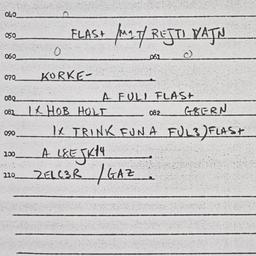 040
050 FLASH /M1T/ REJTI VAJN
060 0 061 0
070 KORKE-
080 A FULI FLASH
081 1X HOB HOLT 082 G8ERN
090 1X TRINK FUN A FUL3)FLASH
100 A
110 ZELC3R /GAZ.